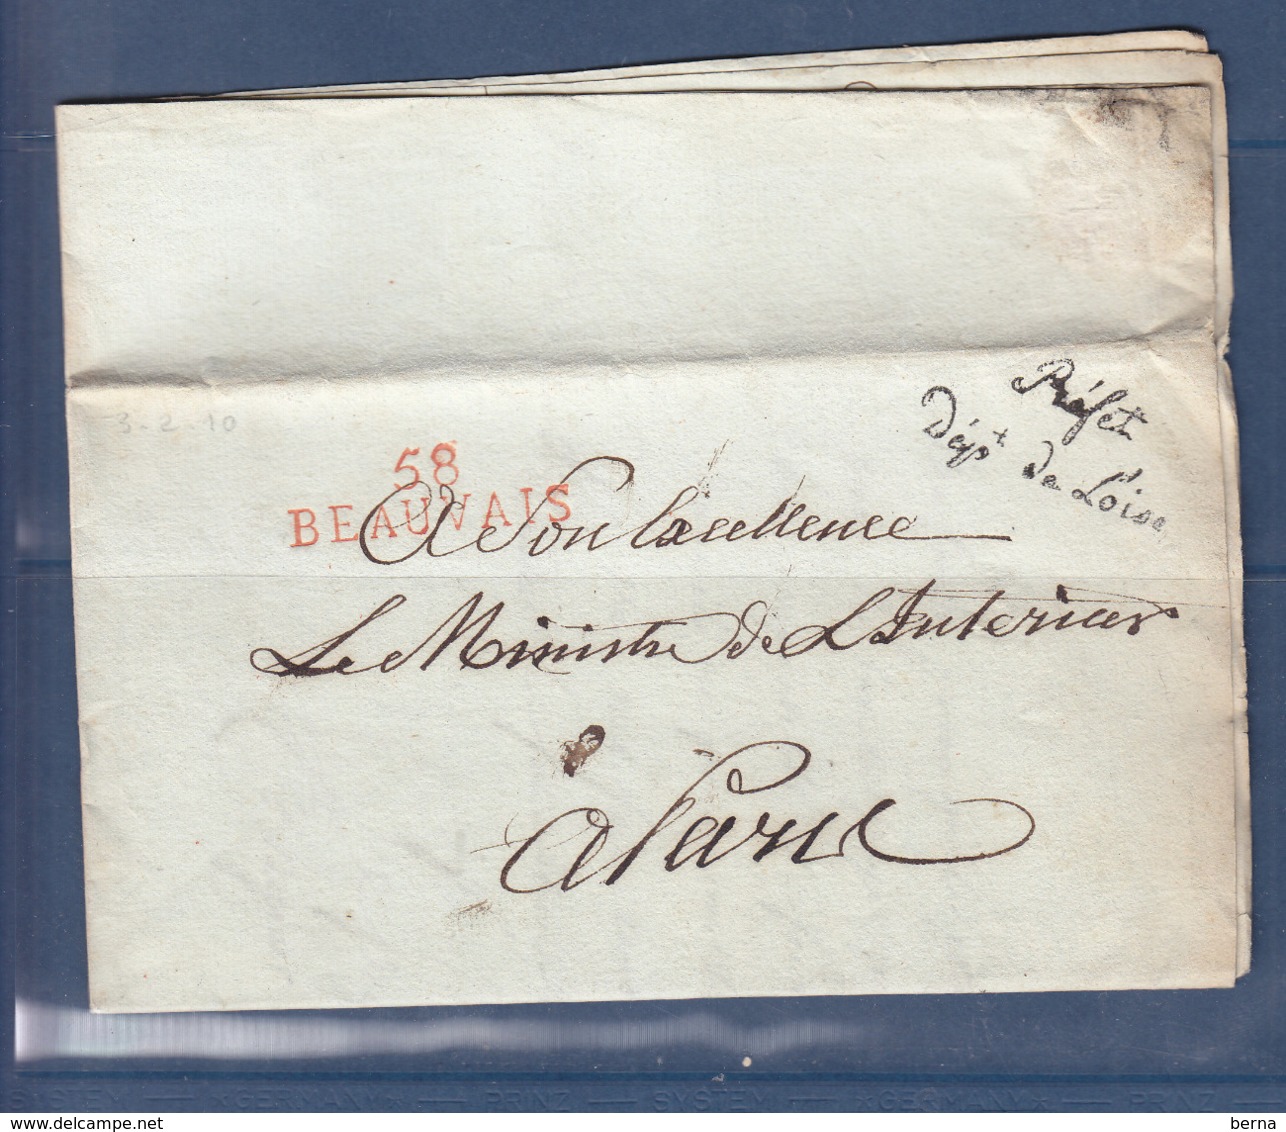 Préfet
Dépt de Loise
3-2-10
58
BEAUVAIS
A Son Excellence
Le Ministre de L'Interieur
A Paris
SYSTEM ★GERMANY★ PRINZ SYSTEM ★GERMANY★ PRINZ
www.delcampe.net
berna